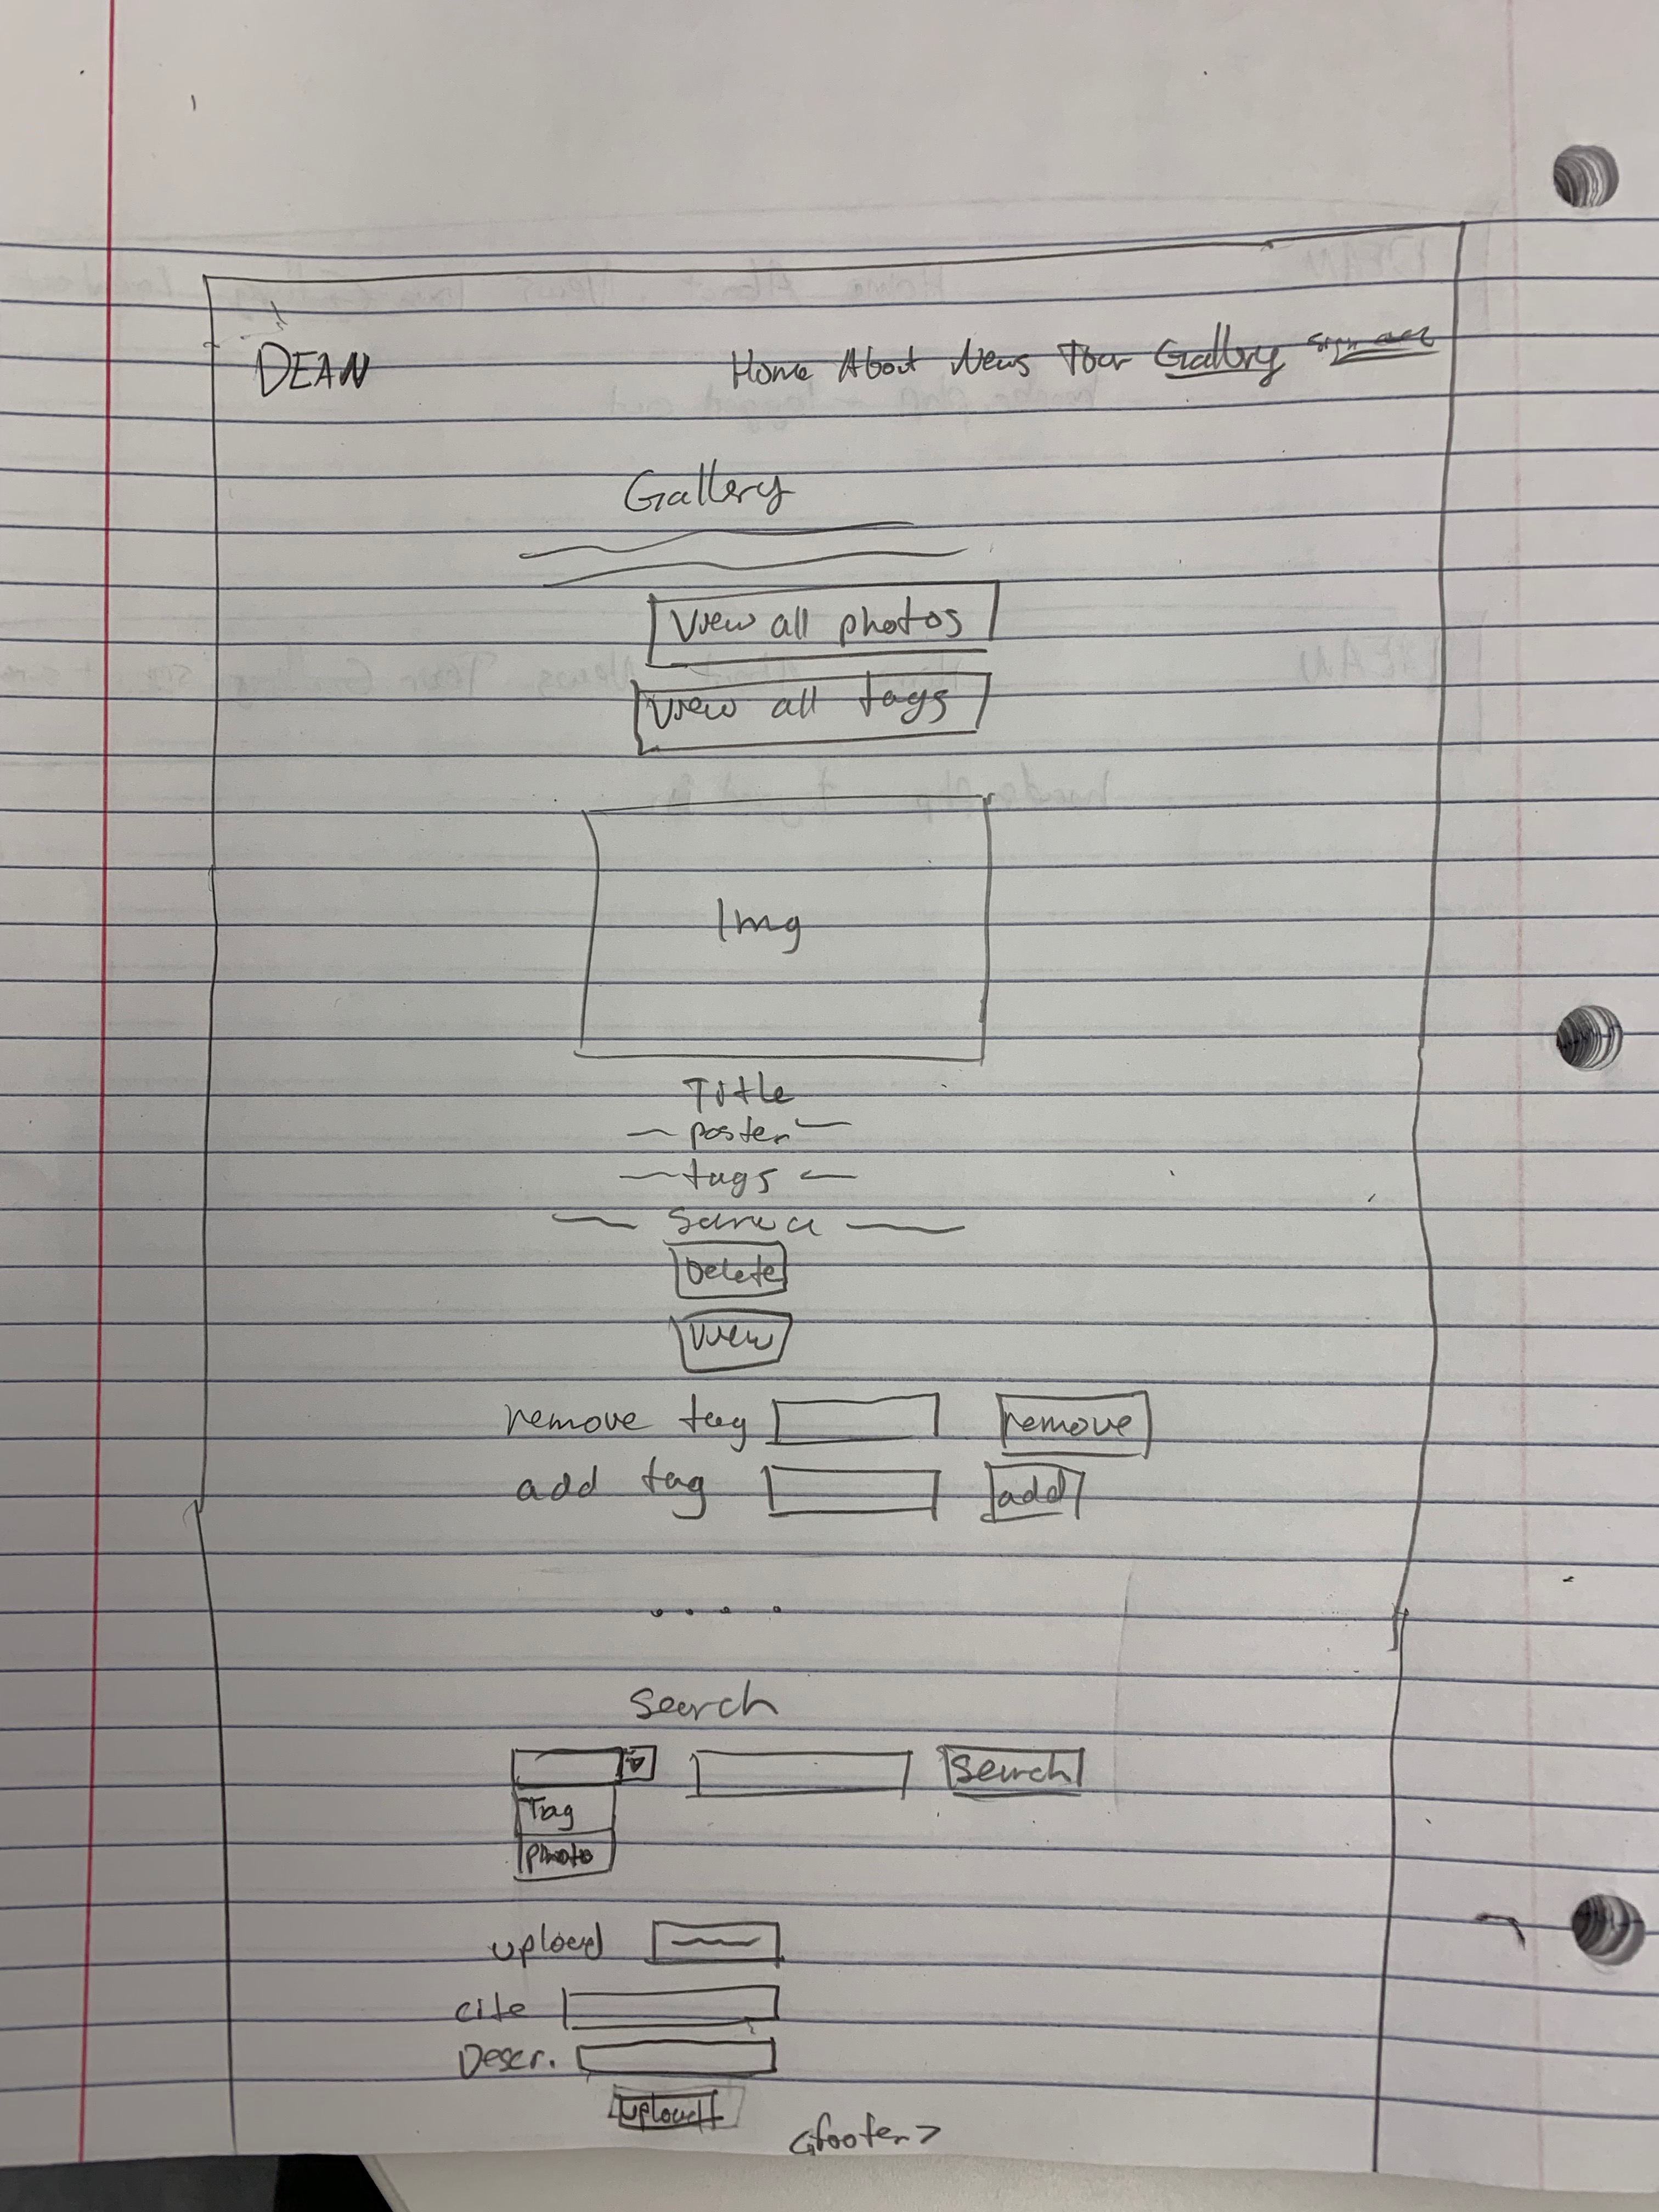 DEAN
Home About News Tour Gallery sign out
Gallery
View all photos
View all tags
Img
Title
poster
tags
Delete
View
remove tag remove
add tag add
....
Search
Search
Tag
photo
upload
cite
Descr.
upload
<footer>